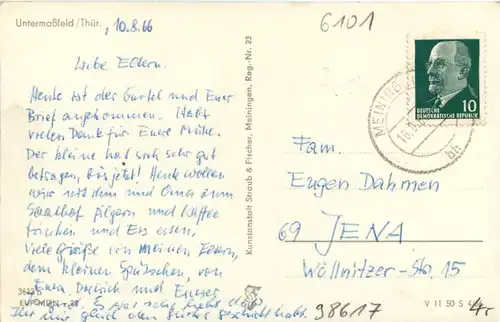 Untermaßfeld/Thür.
, 10.8.66
6101
Liebe Eltern.
Heute ist der Gürtel und Euer
Brief angekommen. Habt
vielen Dank für Eure Mühe.
Der kleine hat sich sehr gut
betragen, bis jetzt! Heute wollen
wir mit ihm und Oma zum
pilgern und Kaffee
trinken und Eis essen.
Viele Grüße von meinen Eltern,
dem kleinen Spätzchen, von
und Eurer
Es war sehr nett daß
Ihr mir gleich den Gürtel geschickt habt.
3642 G
Kunstanstalt Straub & Fischer, Meiningen, Reg.-Nr. 23
MEINING
10.8.
bb
DEUTSCHE
DEMOKRATISCHE REPUBLIK
10
Fam.
Eugen Dahmen
69 JENA
Wöllnitzer-Str. 15
98617
V 11 50 S
4,-